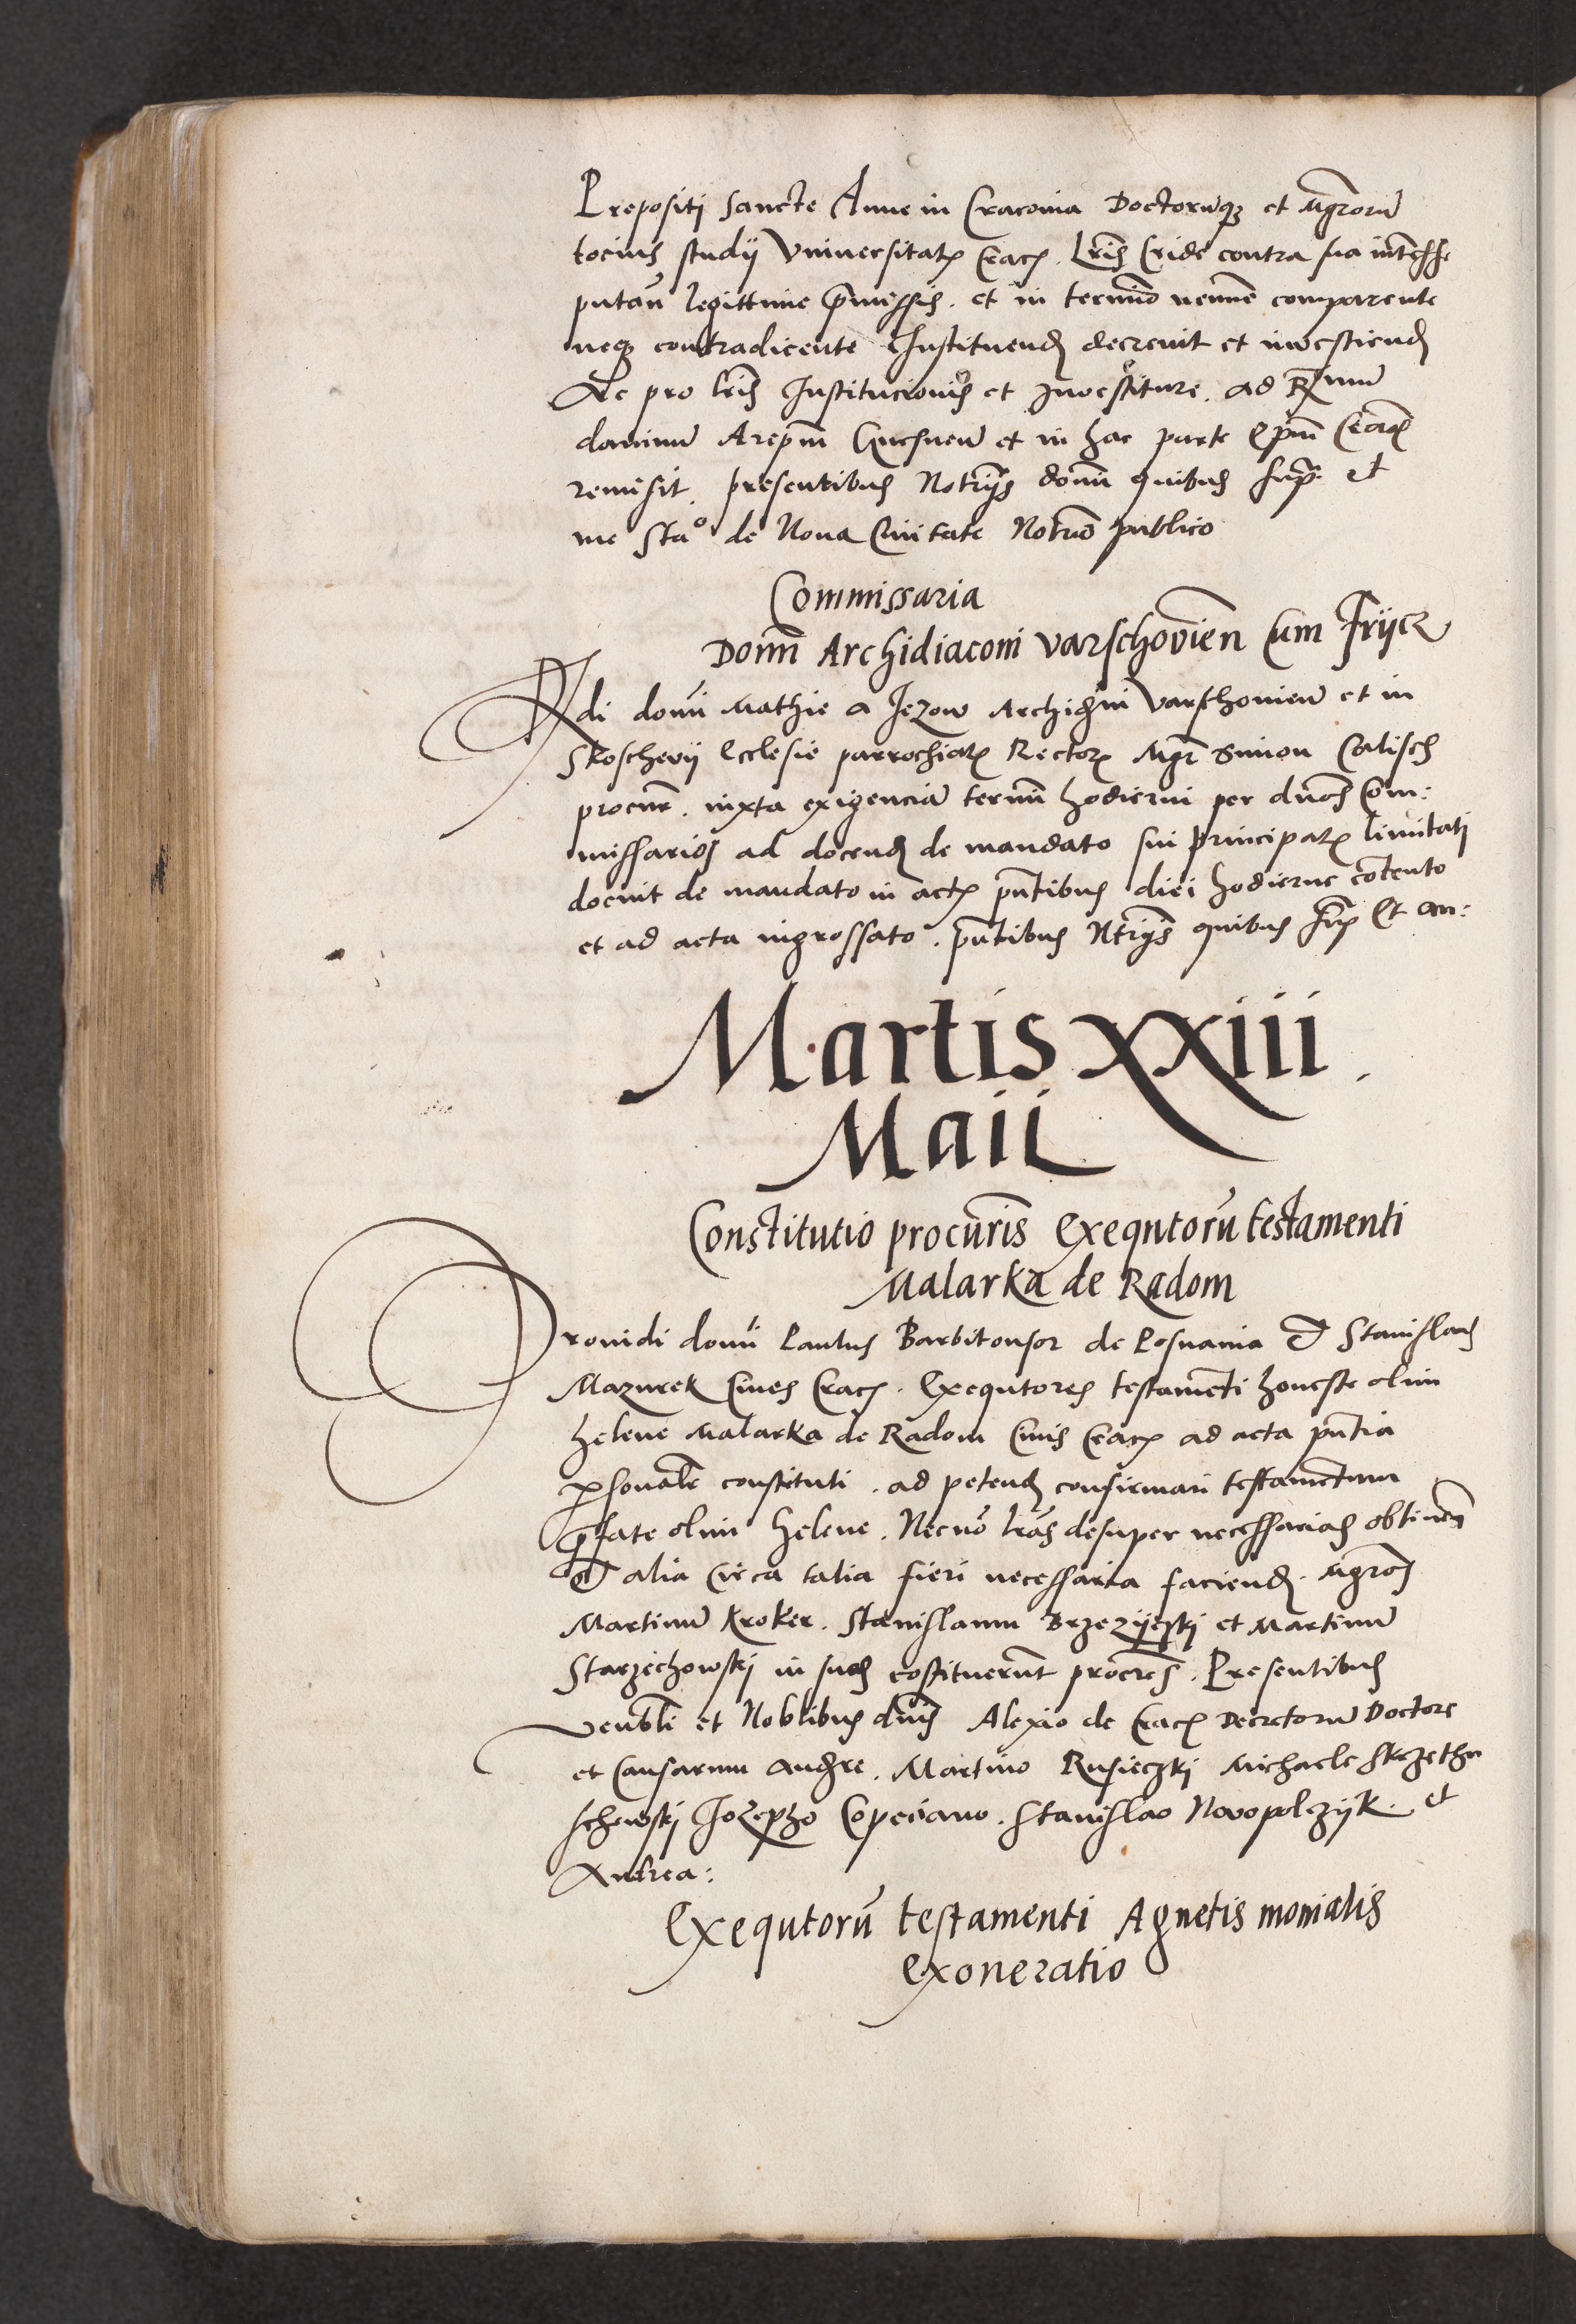 Prepositi Sancte Anne in Cracovia Doctorumq; et Mgrorum
tocius studij Universitatis Crac. Lris Cride contra sua interesse
putan legittime premissis. et in termino nemine comparente
neq; contradicente Instituend decrevit et investiend
Ac pro lris Institucionis et Investiture. ad Rmum
dominum Arepm Gnesnen et in hac parte Epm Crac
remisit. presentibus Notrijs domi quibus supra et
me Stao de Nova Civitate Notrio publico
Commissaria
Domi Archidiaconi Varschovien Cum Frijcz
Rdi domi Mathie a Jezow Archidni Varschovien et in
Skoschevij Ecclesie parrochialis Rectoris Mgr Simon Calisch
procur. iuxta exigenciam termi hodierni per dnos Com:
missarios ad docend de mandato sui principalis limitati
docuit de mandato in actis pntibus diei hodierne contento
et ad acta ingrossato. pntibus Ntrijs quibus supra Et an:
Martis xxiii.
Maii
Constitutio procuris Exequtorum testamenti
Malarka de Radom
Providi domi Paulus Barbitonsor de Posnania Et Stanislaus
Mazurek Cives Crac. Exequtores testamenti honeste olim
Helene Malarka de Radom Civis Crac ad acta pntia
personalr constituti. ad petend confirmari testamentum
prefate olim Helene. Necno lras desuper necessarias obtinen
Et alia circa talia fieri necessaria faciend. Mgros
Martinum Kroker. Stanislaum Brzezijeski et Martinum
Starzechowskj in suos costituerunt procres. Presentibus
Venbli et Noblibus dnis Alexio de Crac Decretorum Doctore
et Causarum Audre. Martino Rusieczkj Michaele Skrzethu
schewskj Jozepho Copeciano. Stanislao Novopolczijk. et
Andrea:
Exequtorum testamenti Agnetis monialis
Exoneratio